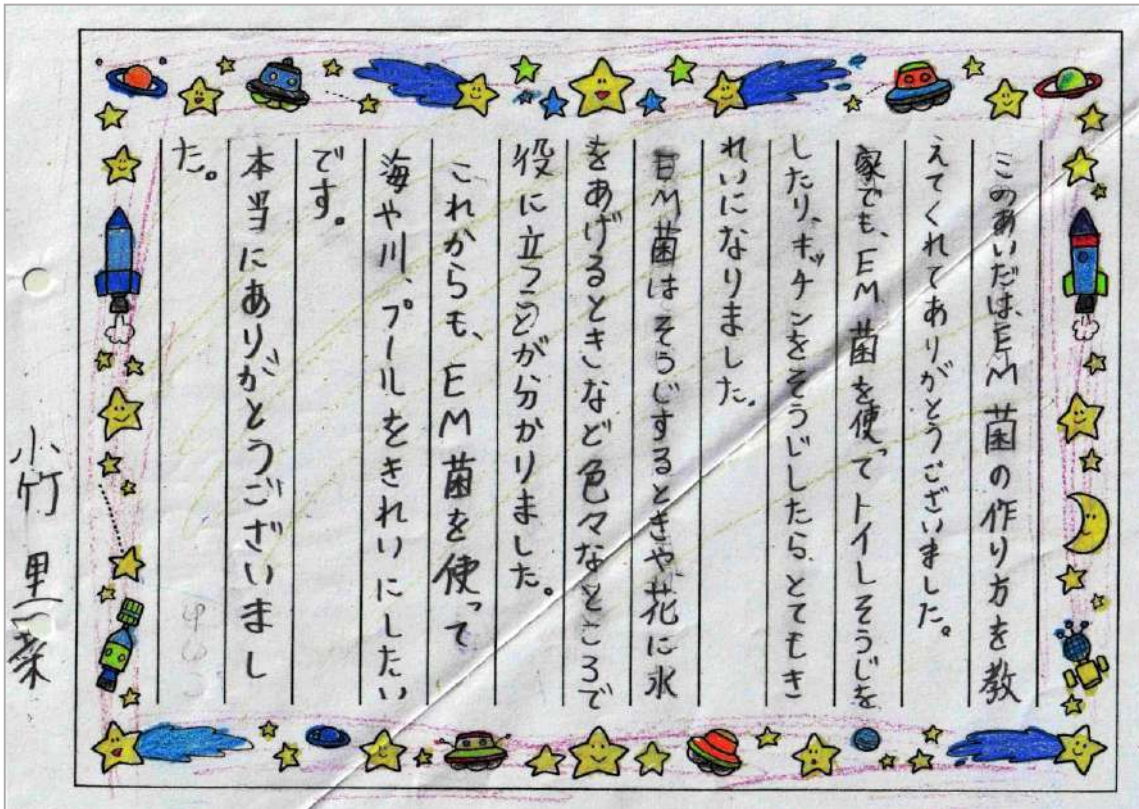 このあいだは、EM菌の作り方を教
えてくれてありがとうございました。
家でも、EM菌を使ってトイレそうじを
したり、キッチンをそうじしたら、とてもき
れいになりました。
EM菌はそうじするときや花に水
をあげるときなど色々なところで
役に立つことが分かりました。
これからも、EM菌を使って
海や川、プールをきれいにしたい
です。
本当にありがとうございまし
た。
小竹 里菜